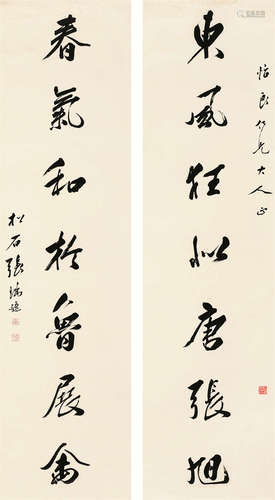 怡良仁兄大人正
東風狂似唐張旭
春氣和於魯展禽
松石張